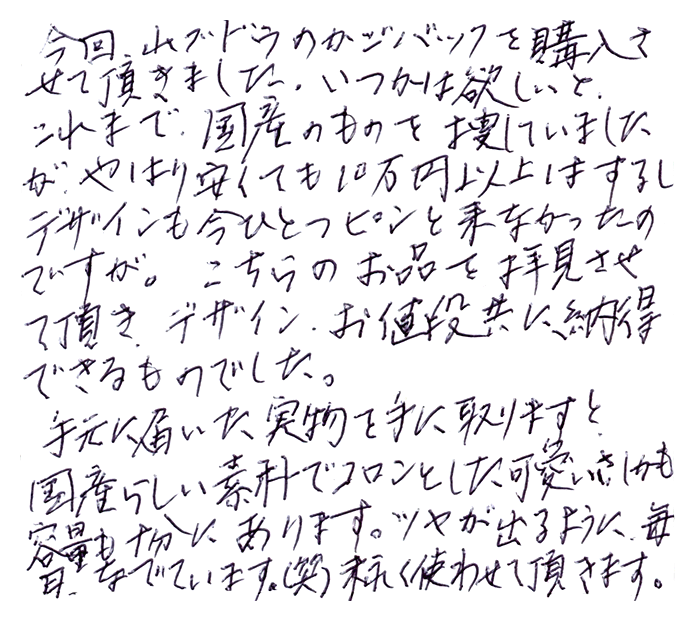 今回、山ブドウのかごバックを購入さ
せて頂きました。いつかは欲しいと、
これまで、国産のものを捜していました
が、やはり安くても10万円以上はするし
デザインも今ひとつピンと来なかったの
ですが。こちらのお品を拝見させ
て頂き、デザイン、お値段共に、納得
できるものでした。
手元に届いた、実物を手に取りますと
国産らしい素朴でコロンとした、可愛いさ、しかも
容量も十分に、あります。ツヤが出るように、毎
日、なでています。(笑)末永く使わせて頂きます。